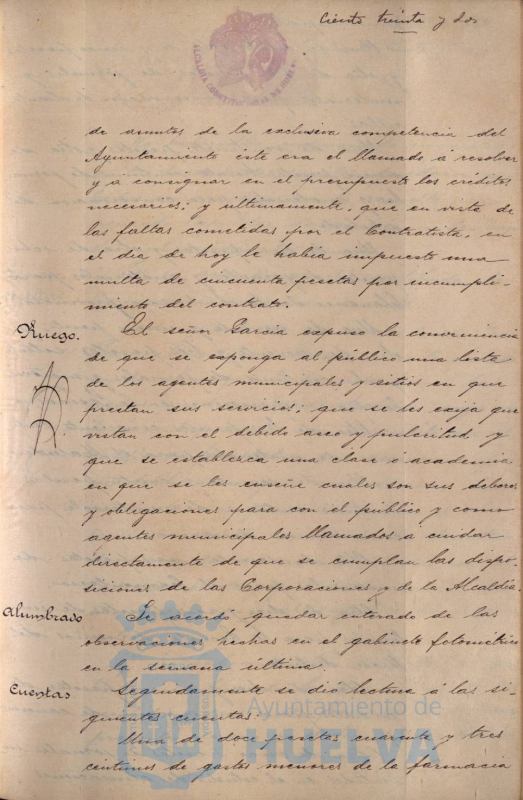 Ciento treinta y dos
ALCALDIA CONSTITUCIONAL DE HUELVA
de asuntos de la exclusiva competencia del
Ayuntamiento éste era el llamado á resolver
y á consignar en el presupuesto los créditos
necesarios; y últimamente, que en vista de
las faltas cometidas por el Contratista, en
el dia de hoy le habia impuesto una
multa de cincuenta pesetas por incumpli-
miento del contrato.
Ruego.
El señor Garcia expuso la conveniencia
de que se exponga al público una lista
de los agentes municipales y sitios en que
prestan sus servicios; que se les exija que
vistan con el debido aseo y pulcritud y
que se establezca una clase ó academia
en que se les enseñe cuales son sus deberes
y obligaciones para con el público y como
agentes municipales llamados a cuidar
directamente de que se cumplan las dispo-
siciones de las Corporaciones y de la Alcaldía.
Alumbrado
Se acordó quedar enterado de las
observaciones hechas en el gabinete fotométrico
en la semana última.
Cuentas
Segundamente se dió lectura á las si-
guientes cuentas:
Una de doce pesetas cuarenta y tres
céntimos de gastos menores de la farmacia
Ayuntamiento de
HUELVA